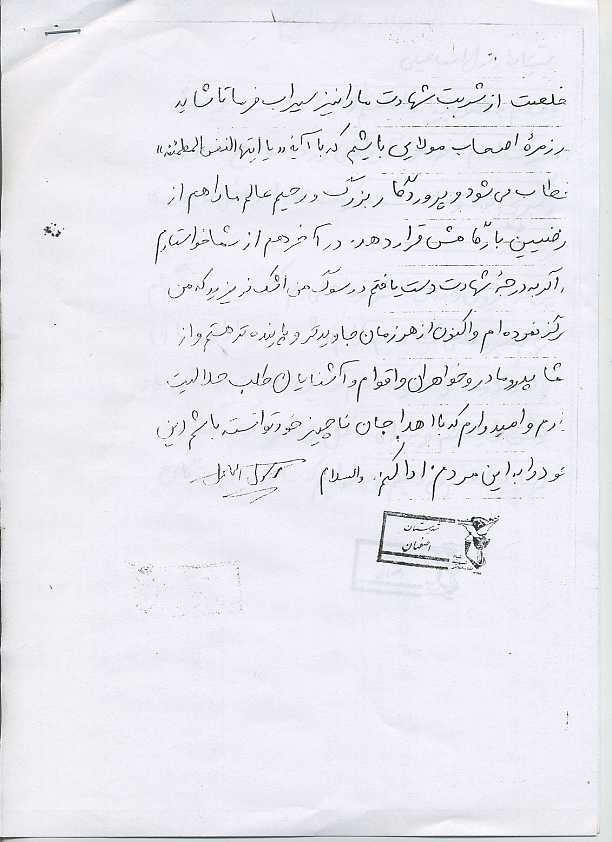 خلعت از شربت شهادت ما را نیز سیراب فرما تا شاید
در زمرهٔ اصحاب مولایی باشیم که با آیهٔ «یا ایتها النفس المطمئنه»
خطاب می شود و پروردگار بزرگ و رحیم عالم ما را هم از
بارگاهش قرار دهد. در آخر هم از شما خواستارم
اگر به درجهٔ شهادت دست یافتم در سوگ من اشک نریزید که من
هرگز نمرده ام و اکنون از هر زمان جاویدتر و پاینده تر هستم و از
شما پدر و مادر و خواهران و اقوام و آشنایان طلب حلالیت
دارم و امیدوارم که با اهدا جان ناچیز خود توانسته باشم این
خود را به این مردم ادا کنم. والسلام
شهرستان
اصفهان